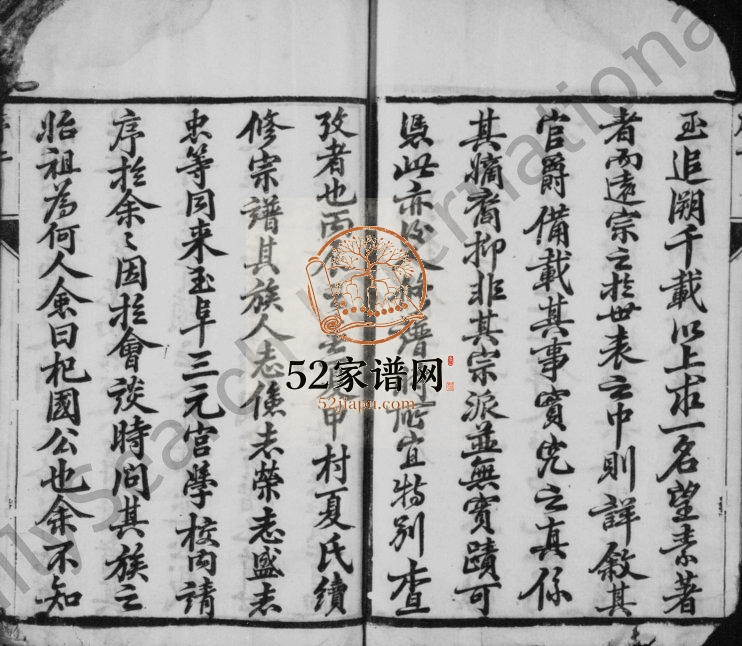 至追溯千載以上求一名望素著
者而遠宗之於世表之中則詳敘其
官爵備載其事實究之真係
其嫡裔抑非其宗派並無實蹟可
憑此亦後譜所宜特別查
攷者也丙村夏氏續
修宗譜其族人志儀志榮志盛志
忠等同来玉阜三元宮學校而請
序於余〻因於會談時問其族之
始祖為何人僉曰杞國公也余不知
52家谱网
52jiapu.com
FamilySearch International